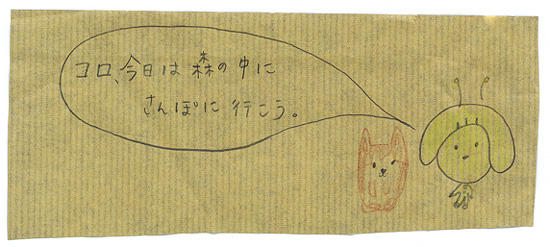 コロ、今日は森の中に
さんぽに行こう。